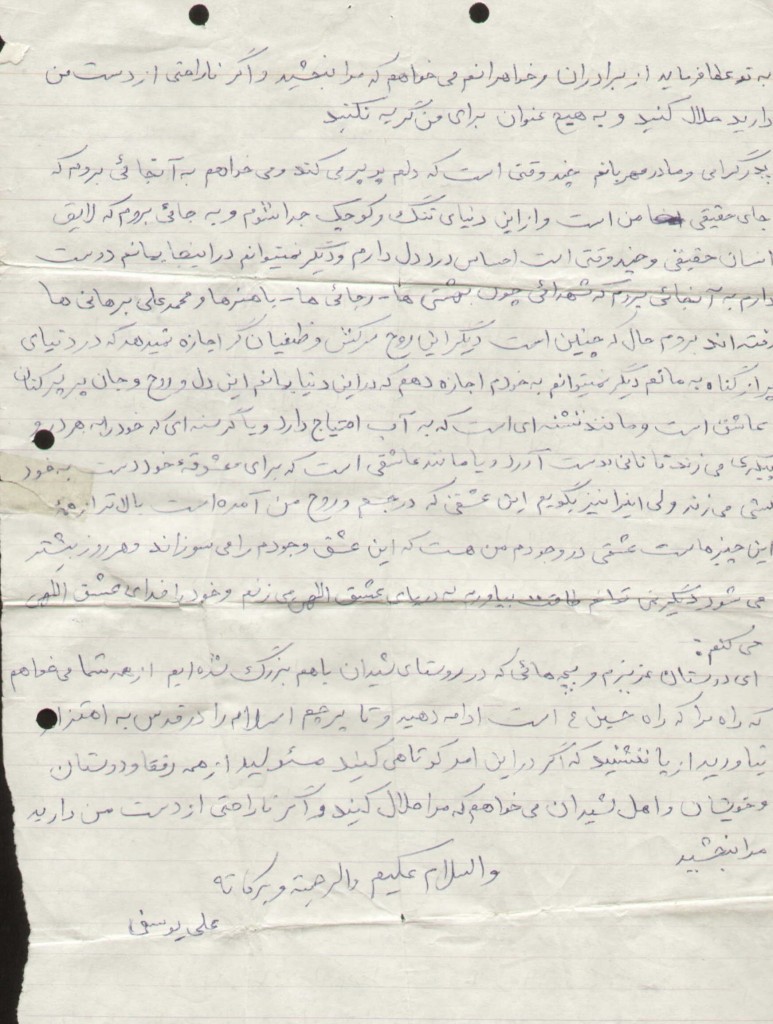 به تو عطا فرماید از برادران و خواهرانم می خواهم که مرا ببخشید و اگر ناراحتی از دست من
دارید حلال کنید و به هیچ عنوان برای من گریه نکنید
پدر گرامی و مادر مهربانم چند وقتی است که دلم پر پر می کند و می خواهم به آنجائی بروم که
جای حقیقی من است و از این دنیای تنگ و کوچک جدا شوم و به جائی بروم که لایق
انسان حقیقی و چند وقتی است احساس درد دل دارم و دیگر نمیتوانم در اینجا بمانم دوست
دارم به آنجائی بروم که شهدائی چون بهشتی ها - رجائی ها - باهنرها و محمد علی برهانی ها
رفته اند بروم حال که چنین است دیگر این روح سرکش و طغیان گر اجازه نمیدهد که در دنیای
پر از گناه به مانم دیگر نمیتوانم به خودم اجازه دهم که در این دنیا بمانم این دل و روح و جان پر پر کنان
عاشق است و مانند تشنه ای است که به آب احتیاج دارد و یا گرسنه ای که خود را به هر در و
می زند تا نانی بدست آورد و یا مانند عاشقی است که برای معشوقهٔ خود دست به خود
کشی می زند ولی اینرا نیز بگویم این عشقی که در جسم و روح من آمده است بالاتر از
این چیزهاست عشقی در وجودم من هست که این عشق وجودم را می سوزاند و هر روز بیشتر
می شود دیگر نمی توانم طاقت بیاورم به دریای عشق اللهی می زنم و خود را فدای عشق اللهی
می کنم:
ای دوستان عزیزم و بچه هائی که در روستای شیدان با هم بزرگ شده ایم از همه شما می خواهم
که راه مرا که راه حسین ع است ادامه دهید و تا پرچم اسلام را در قدس به اهتزاز
نیاورید از پا ننشینید که اگر در این امر کوتاهی کنید مسئولید از همه رفقا و دوستان
و خویشان و اهل شیدان می خواهم که مرا حلال کنید و اگر ناراحتی از دست من دارید
مرا ببخشید
والسلام علیکم والرحمته و برکاته
علی یوسفی